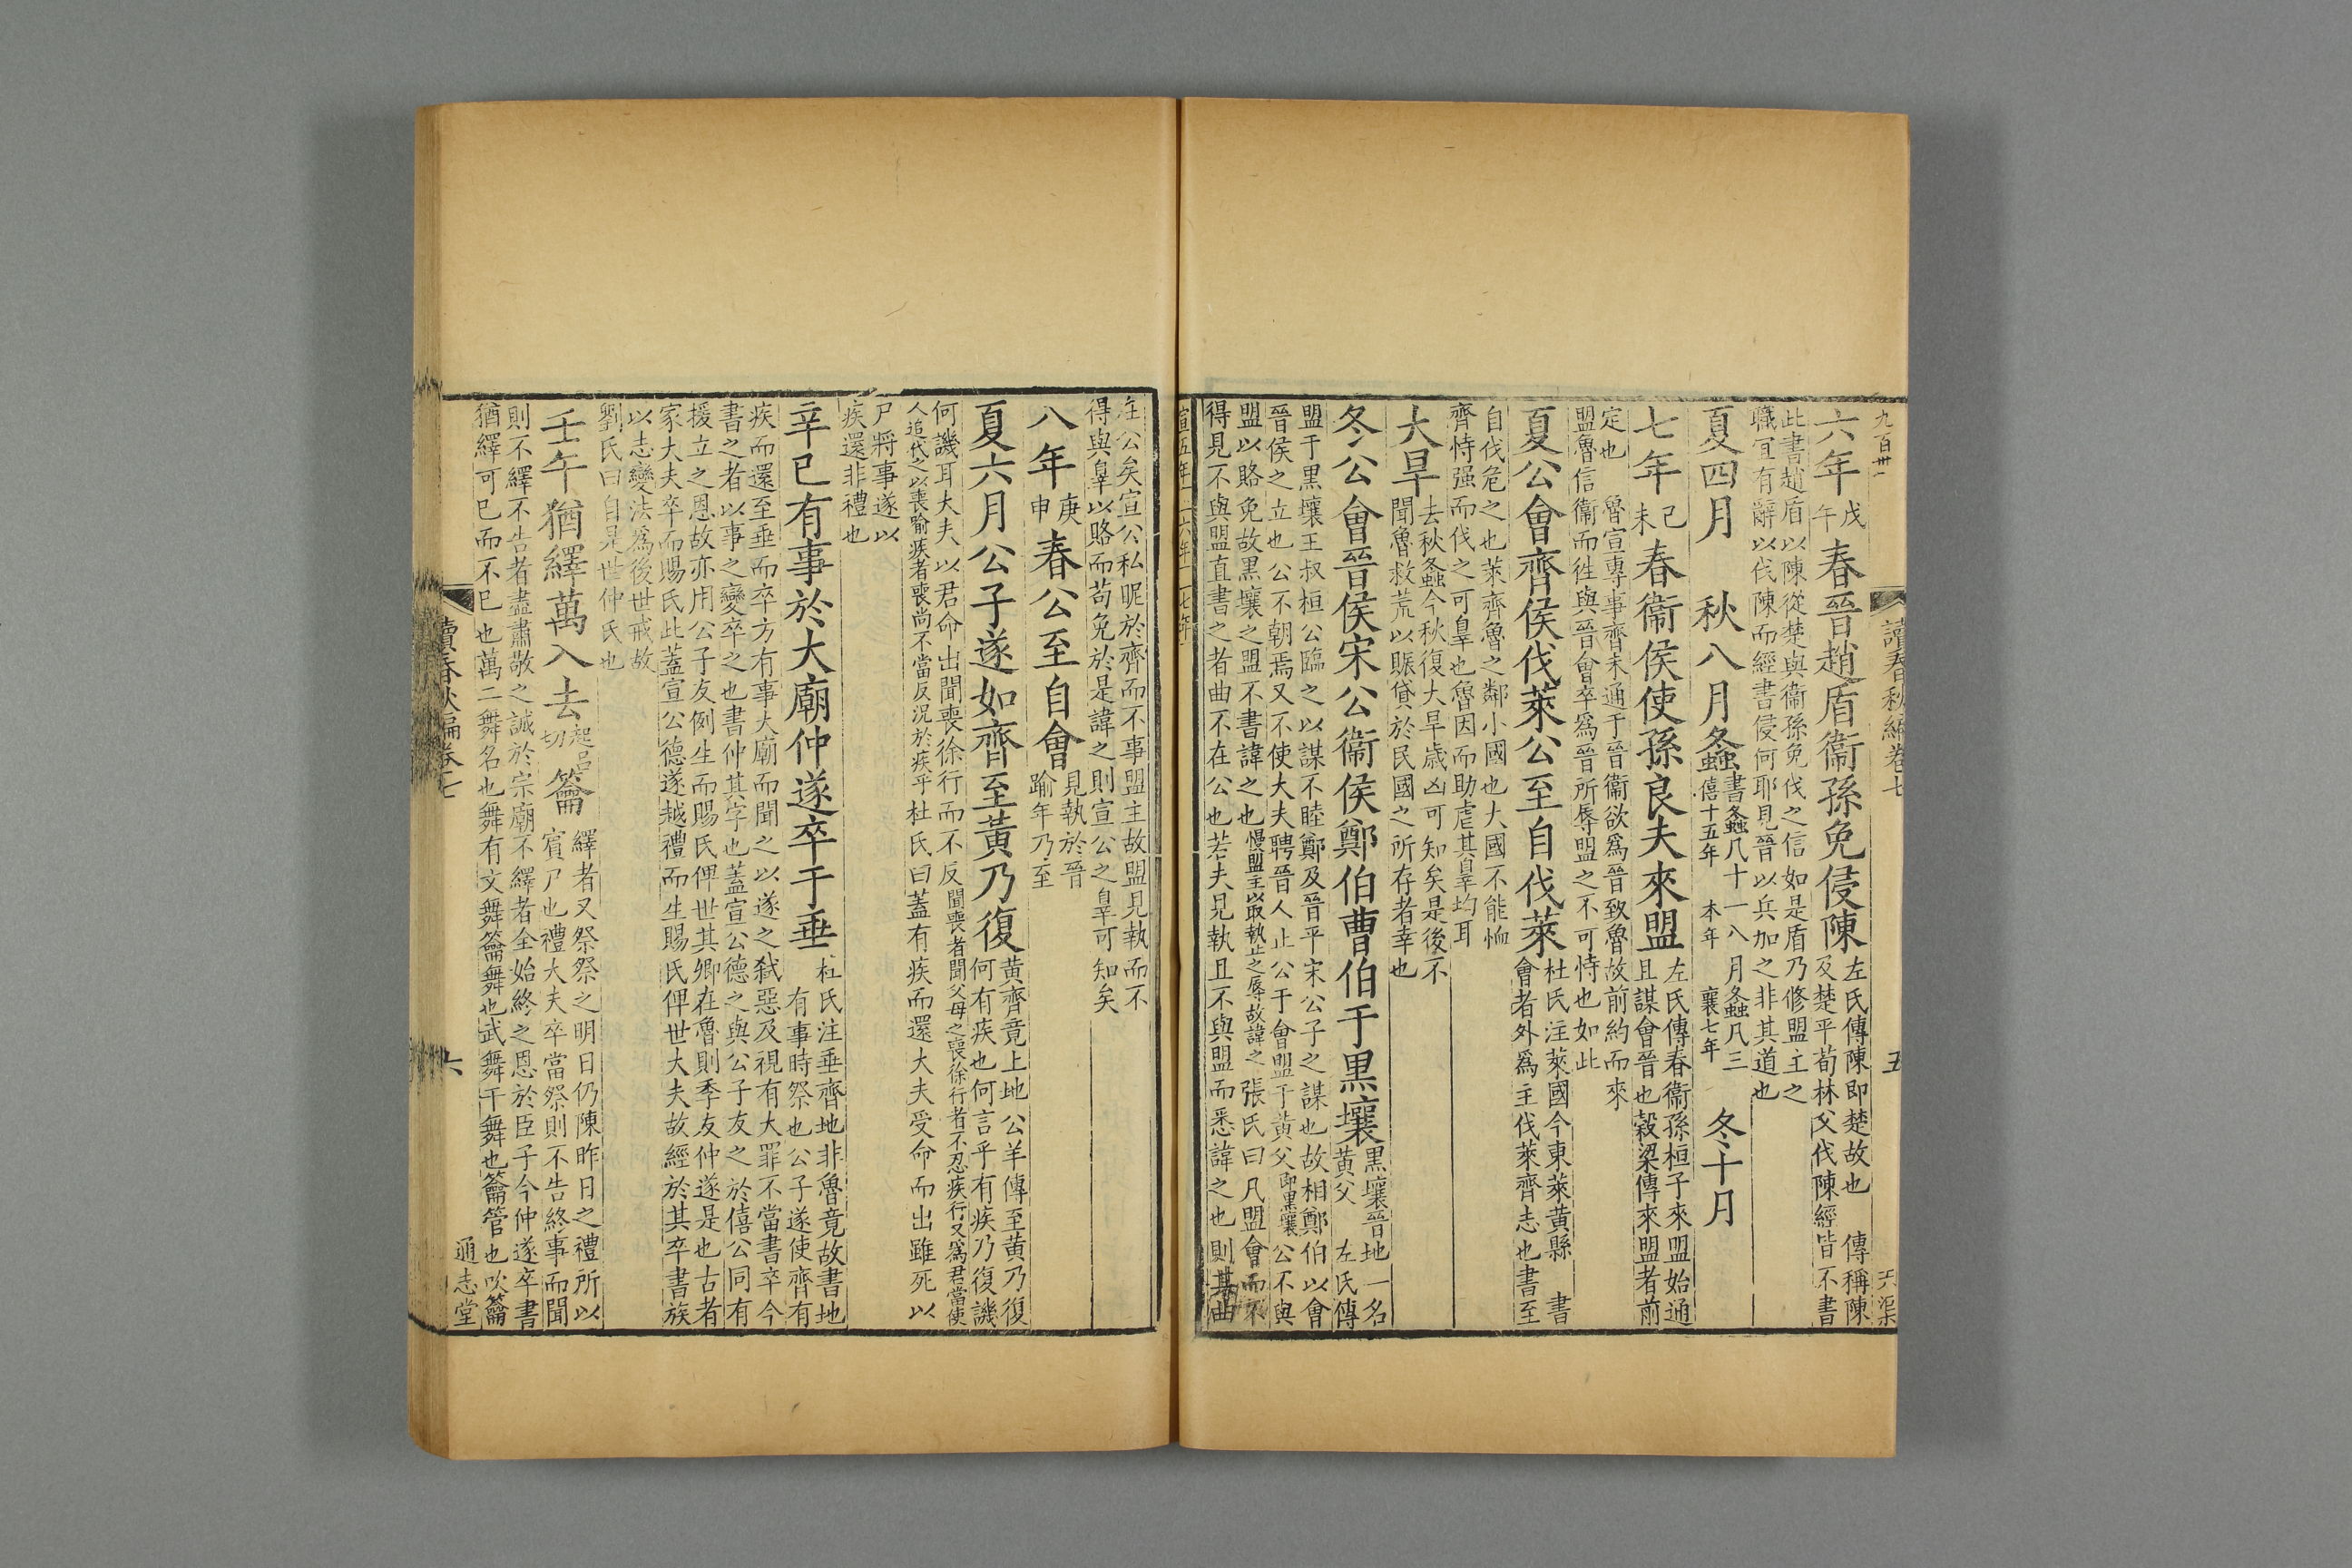 九百卅一
讀春秋編卷七
五
六年戊午春晉趙盾衞孫免侵陳左氏傳陳即楚故也 傳稱陳
及楚平荀林父伐陳經皆不書
此書趙盾以陳從楚與衞孫免伐之信如是盾乃修盟主之
職冝有辭以伐陳而經書侵何耶見晉以兵加之非其道也
夏四月 秋八月螽書螽凡十一八月螽凡三
僖十五年 本年 襄七年 冬十月
七年己未春衞侯使孫良夫來盟左氏傳春衞孫桓子來盟始通
且謀會晉也穀梁傳來盟者前
定也 魯宣專事齊未通于晉衞欲爲晉致魯故前約而來
盟魯信衞而徃與晉會卒爲晉所辱盟之不可恃也如此
夏公會齊侯伐萊公至自伐萊杜氏注萊國今東萊黃縣 書
會者外爲主伐萊齊志也書至
自伐危之也萊齊魯之鄰小國也大國不能恤
齊恃强而伐之可辠也魯因而助虐其辠均耳
大旱去秋螽今秋復大旱歲凶可知矣是後不
聞魯救荒以賑貸於民國之所存者幸也
冬公會晉侯宋公衞侯鄭伯曹伯于黒壤黒壤晉地一名
黃父 左氏傳
盟于黒壤王叔桓公臨之以謀不睦鄭及晉平宋公子之謀也故相鄭伯以會
晉侯之立也公不朝焉又不使大夫聘晉人止公于會盟于黃父即黒壤公不與
盟以賂免故黒壤之盟不書諱之也慢盟主以取執止之辱故諱之張氏曰凡盟會而不
得見不與盟直書之者曲不在公也若夫見執且不與盟而悉諱之也則其曲
宣五年 六年 七年
在公矣宣公私昵於齊而不事盟主故盟見執而不
得與辠以賂而苟免於是諱之則宣公之辠可知矣
八年庚申春公至自會見執於晉
踰年乃至
夏六月公子遂如齊至黃乃復黃齊竟上地公羊傳至黃乃復
何有疾也何言乎有疾乃復譏
何譏耳大夫以君命出聞喪徐行而不反聞喪者聞父母之喪徐行者不忍疾行又爲君當使
人追代之以喪喻疾者喪尚不當反況於疾乎杜氏曰蓋有疾而還大夫受命而出雖死以
尸將事遂以
疾還非禮也
辛巳有事於大廟仲遂卒于垂杜氏注垂齊地非魯竟故書地
有事時祭也公子遂使齊有
疾而還至垂而卒方有事大廟而聞之以遂之弑惡及視有大罪不當書卒今
書之者以事之變卒之也書仲其字也蓋宣公德之與公子友之於僖公同有
援立之恩故亦用公子友例生而賜氏俾世其卿在魯則季友仲遂是也古者
家大夫卒而賜氏此蓋宣公德遂越禮而生賜氏俾世大夫故經於其卒書族
以志變法爲後世戒故
劉氏曰自是世仲氏也
壬午猶繹萬入去起呂切籥繹者又祭祭之明日仍陳昨日之禮所以
賓尸也禮大夫卒當祭則不告終事而聞
則不繹不告者盡肅敬之誠於宗廟不繹者全始終之恩於臣子今仲遂卒書
猶繹可已而不已也萬二舞名也舞有文舞籥舞也武舞干舞也籥管也吹籥
讀春秋編卷七
六
通志堂